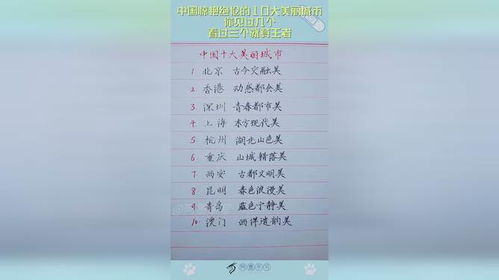 中国惊艳绝伦的10大美丽城市
你见过几个
看过三个就算王者
中国十大美丽城市
1 北京 古今交融美
2 香港 动感都会美
3 深圳 青春都市美
4 上海 东方现代美
5 杭州 湖光山色美
6 重庆 山城错落美
7 西安 古都文明美
8 昆明 春色浪漫美
9 青岛 蓝色宁静美
10 澳门 西洋遗韵美